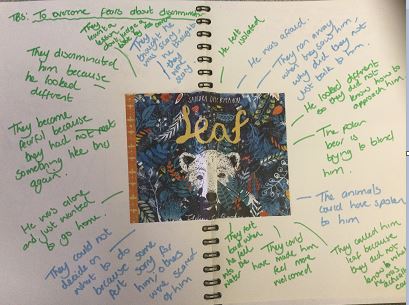 TBS: To overcome fears about discrimination
They learnt a lesson don't judge a book by its cover
They thought he was scary, he thought they were scary
He felt isolated
He was afraid.
They ran away when they saw him, why did they not just talk to him.
They discriminated him because he looked different
He looked different so they did not know how to approach him.
They become fearful because they had not met something like this again.
SANDRA DIECKMANN
Leaf
The polar bear is trying to blend him.
He was alone and just wanted to go home.
The animals could have spoken to him
They could not decide on what to do because some felt sorry for him, others were scared of him
They felt bad when he fell into
They could have made him feel more welcomed
They called him just because they did not know